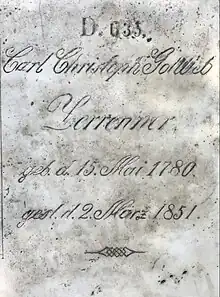 D. 635.
Carl Christoph Gottlieb
Zerrenner
geb. d. 15. Mai 1780.
gest. d. 2. März 1851.